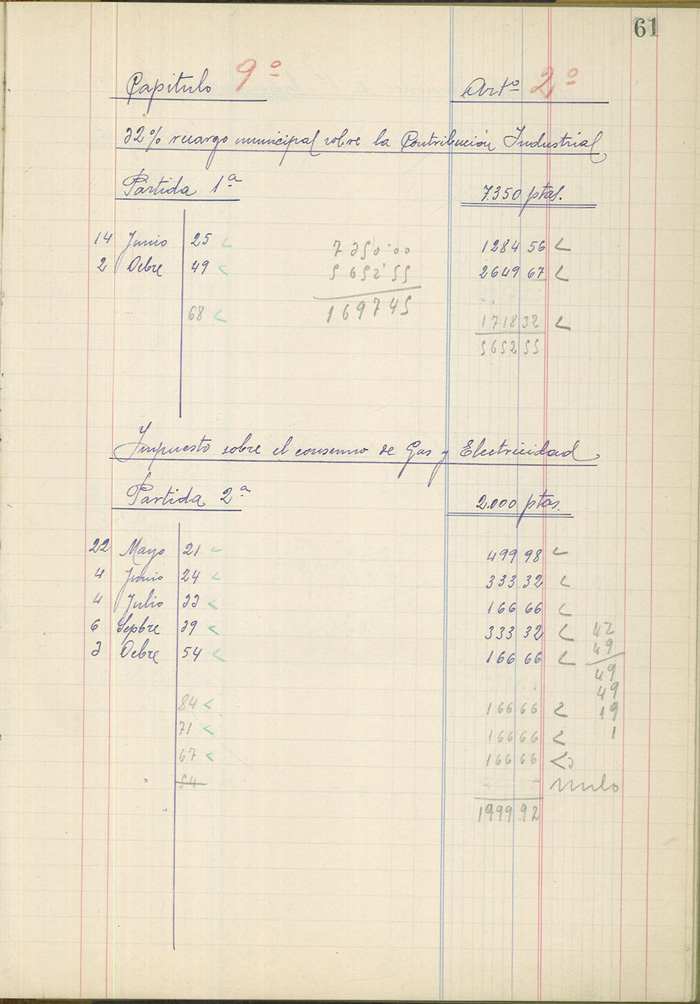 61
Capítulo 9º Artº 2º
32% recargo municipal sobre la Contribución Industrial
Partida 1ª 7.350 ptas.
14 Junio 25 1284 56
2 Ocbre 49 2649 67
7350'00
5652'55
169745
68 1718 32
5652 55
Impuesto sobre el consumo de Gas y Electricidad
Partida 2ª 2.000 ptas.
22 Mayo 21 499 98
4 Junio 24 333 32
4 Julio 33 166 66
6 Sepbre 39 333 32
3 Ocbre 54 166 66
42
49
49
49
19
1
84 166 66
71 166 66
67 166 66
54 nulo
1999 92